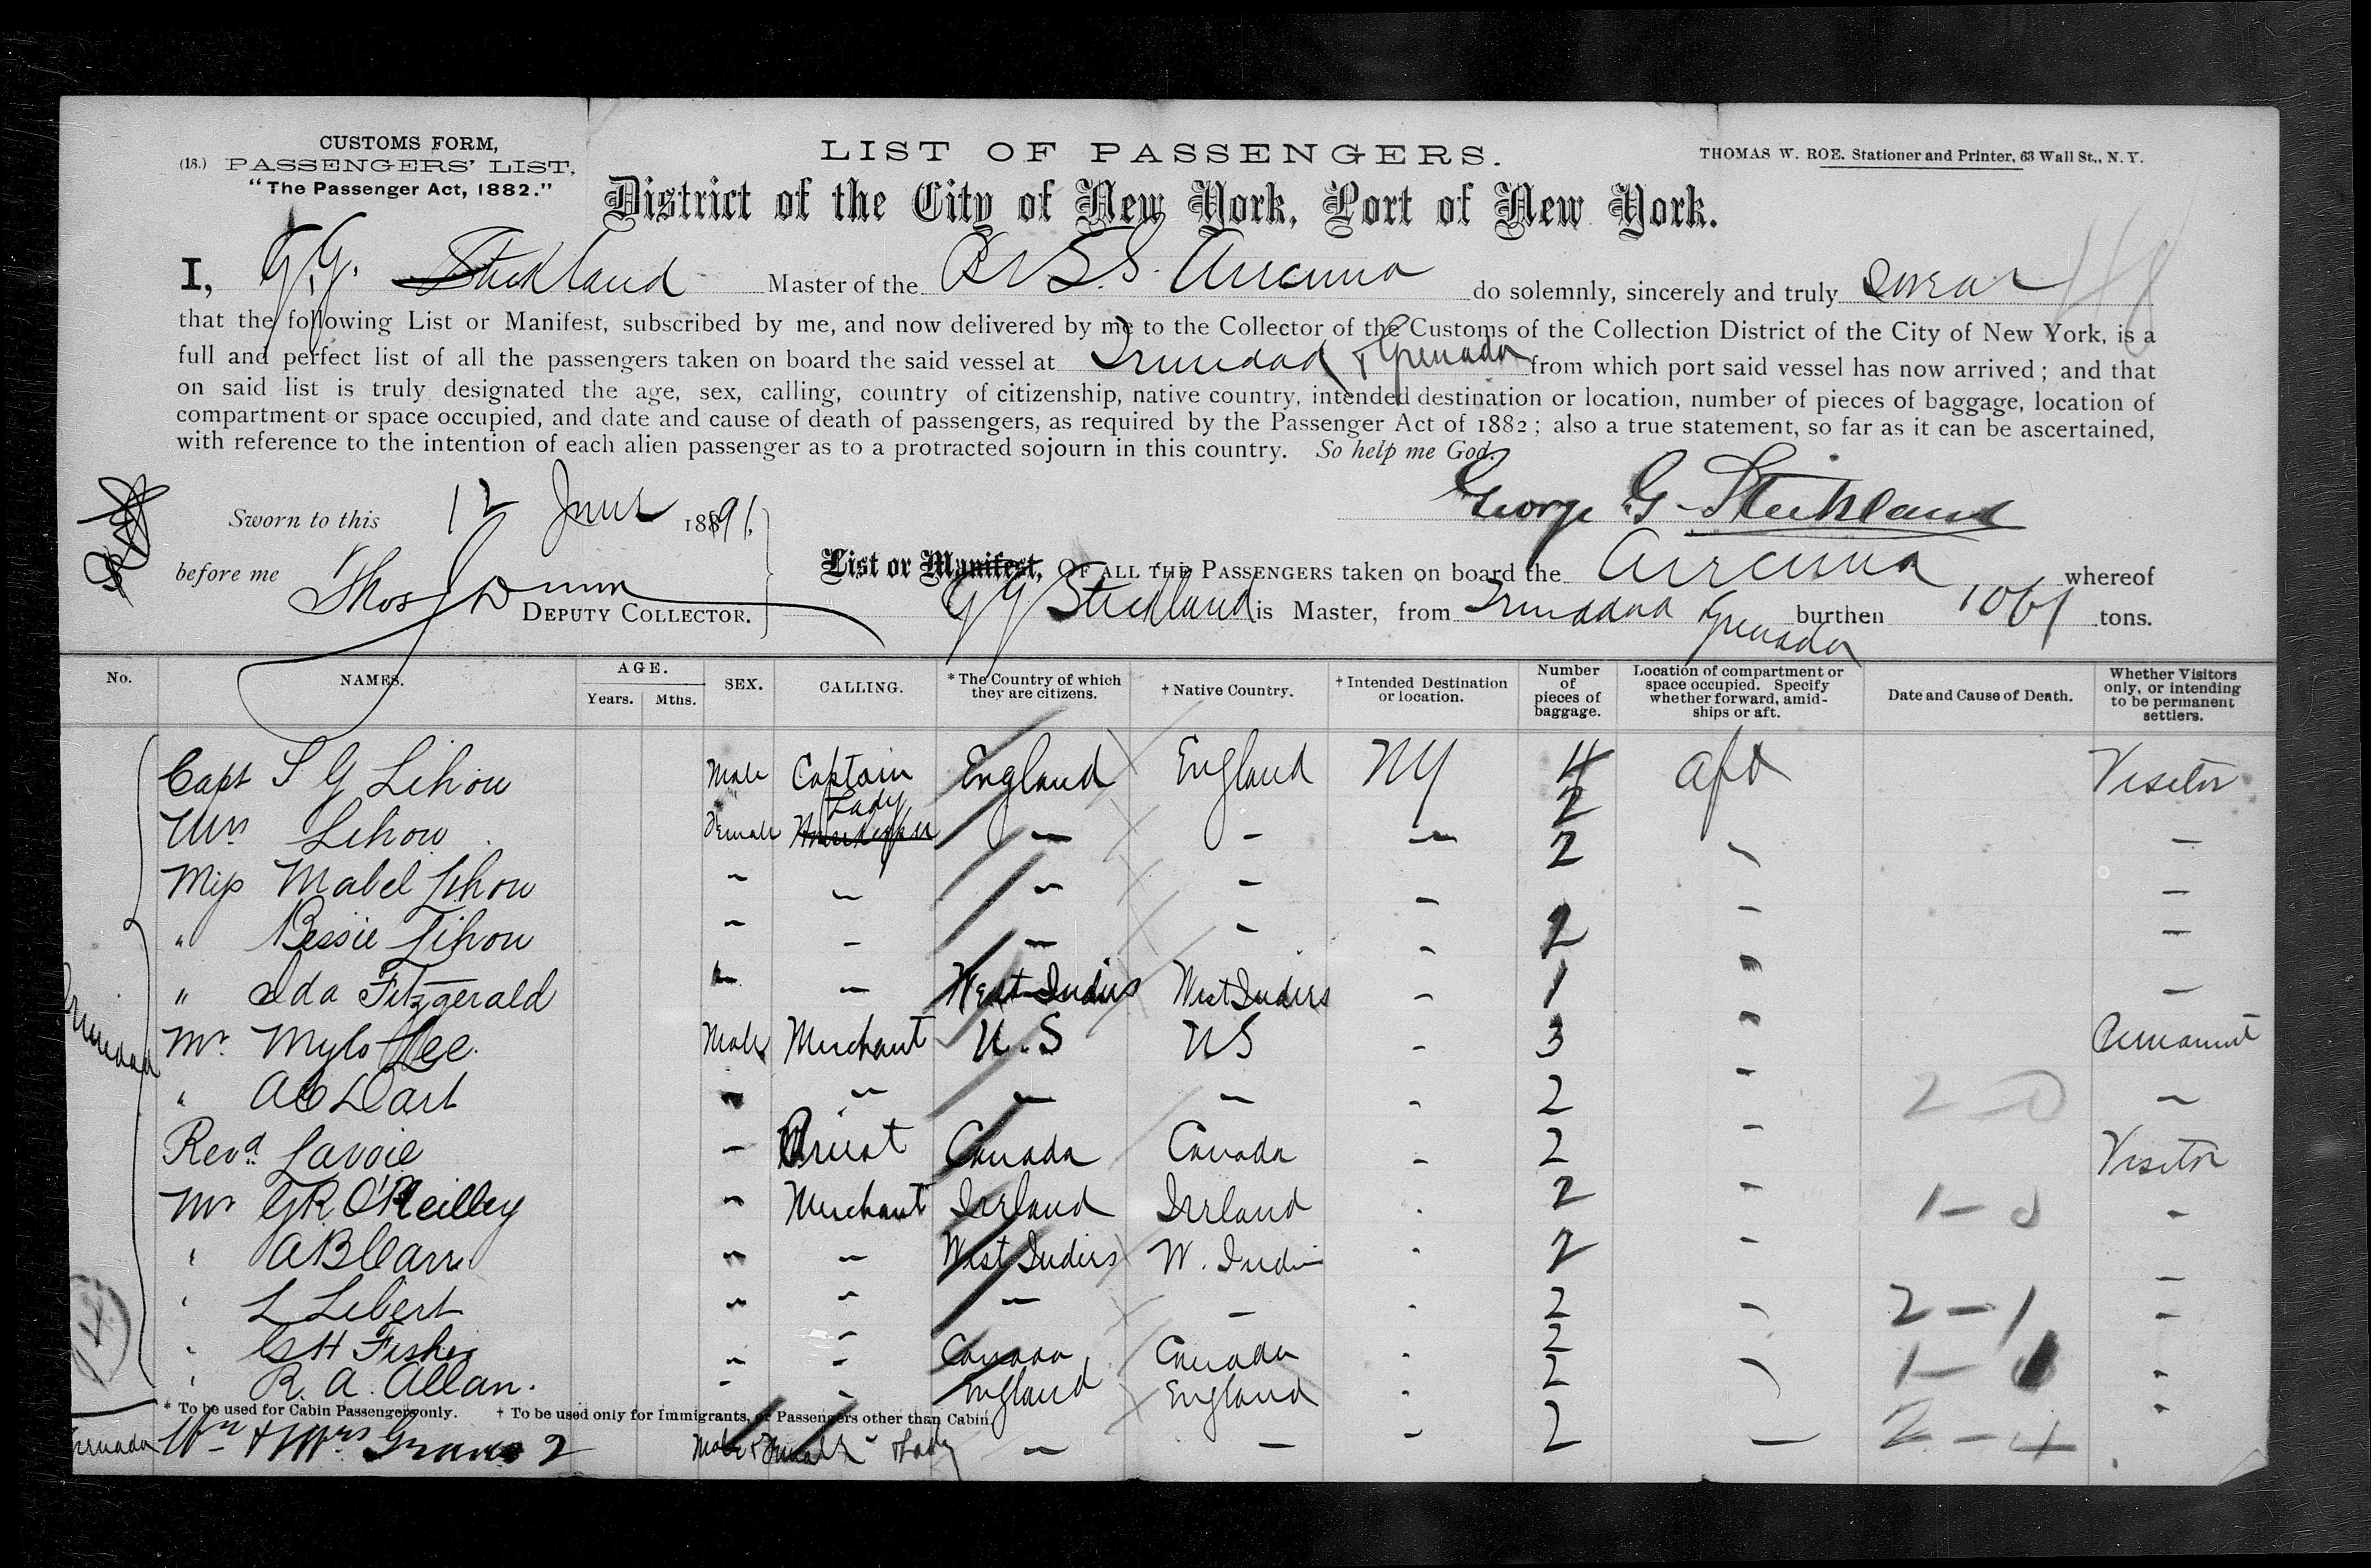 CUSTOMS FORM,
(18.) PASSENGERS' LIST,
"The Passenger Act, 1882."
LIST OF PASSENGERS.
THOMAS W. ROE. Stationer and Printer, 63 Wall St., N.Y.
District of the City of New York, Port of New York.
I, G.G. Stickland Master of the Br S.S. do solemnly, sincerely and truly swear
that the following List or Manifest, subscribed by me, and now delivered by me to the Collector of the Customs of the Collection District of the City of New York, is a
full and perfect list of all the passengers taken on board the said vessel at Trinidad & Grenada from which port said vessel has now arrived; and that
on said list is truly designated the age, sex, calling, country of citizenship, native country, intended destination or location, number of pieces of baggage, location of
compartment or space occupied, and date and cause of death of passengers, as required by the Passenger Act of 1882; also a true statement, so far as it can be ascertained,
with reference to the intention of each alien passenger as to a protracted sojourn in this country. So help me God.
George G Stickland
Sworn to this 12 June 1891.
before me Thos J Dunn
DEPUTY COLLECTOR.
List or Manifest, OF ALL THE PASSENGERS taken on board the whereof
G G Stickland is Master, from Trinidad Grenada burthen 1061 tons.
No. NAMES. AGE. Years. Mths. SEX. CALLING. * The Country of which they are citizens. † Native Country. † Intended Destination or location. Number of pieces of baggage. Location of compartment or space occupied. Specify whether forward, amidships or aft. Date and Cause of Death. Whether Visitors only, or intending to be permanent settlers.
Capt S G Lihou Male Captain England England NY 4 aft Visitor
Mrs Lihou Female Lady — — — 2 —
Miss Mabel Lihou — — — — — 2 — —
" Bessie Lihou — — — — — 2 — —
" Ida Fitzgerald — — West Indies West Indies — 1 — —
Trinidad
Mr. Mylo Lee. Male Merchant U.S US — 3 — Permanent
" AC Dart — — — — — 2 — 2-0 —
Revd. Lavoie — Priest Canada Canada — 2 — Visitor
Mr GR O'Reilley — Merchant Irland Irland — 2 — 1-0 —
" AB Carr — — West Indies W. Indi — 2 — —
" L Libert — — — — — 2 — 2-1 —
" G H Fisher — — Canada Canada — 2 1- —
" R. A. Allan. — — England England — 2 — —
* To be used for Cabin Passengers only. † To be used only for Immigrants, or Passengers other than Cabin.
Grenada Mr & Mrs 2 Male & Female " & Lady — — — 2 — 2-4